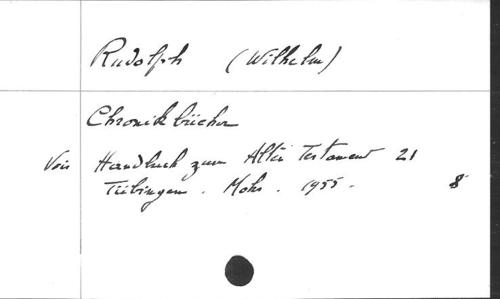 Rudolph (Wilhelm)
Chronikbücher
Voir Handbuch zum Alten Testament 21
Tübingen. Mohr. 1955. 8